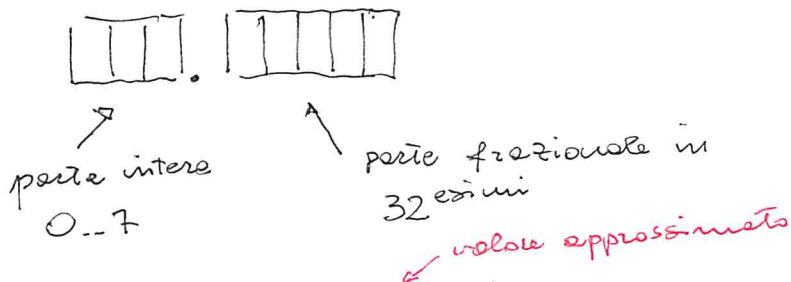 parte intera
0..7
parte frazionale in
32 esimi
valore approssimato